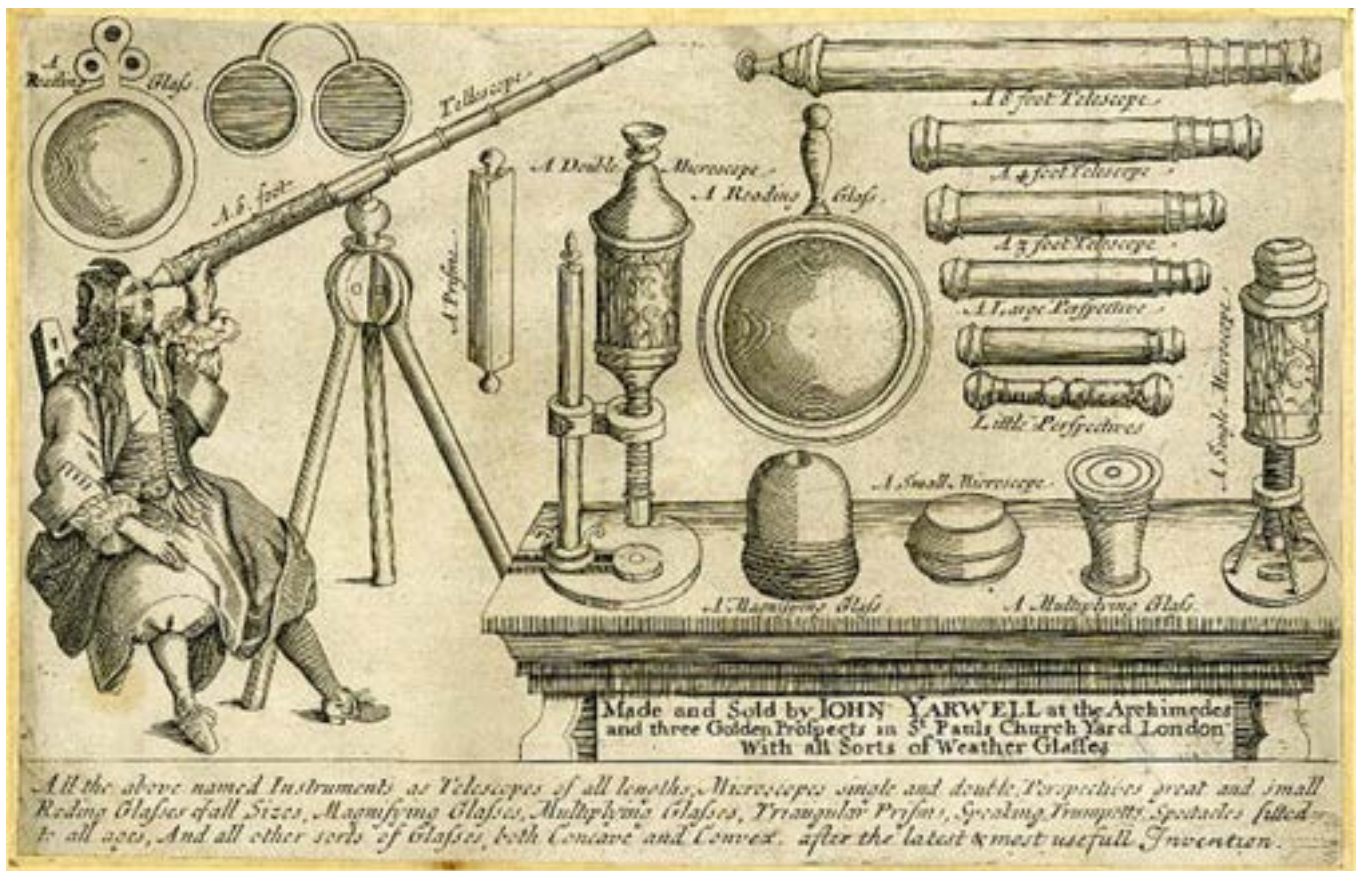 A Reading Glass.
A 6 foot Telescope.
A Prisme
A Double Microscope.
A Reading Glass.
A 8 foot Telescope.
A 4 foot Telescope
A 3 foot Telescope
A Large Perspective
Little Perspectives
A Single Microscope.
A Small Microscope.
A Magnifying Glass
A Multiplying Glass.
Made and Sold by IOHN YARWELL at the Archimedes
and three Golden Prospects in St. Pauls Church Yard London
With all Sorts of Weather Glasses
All the above named Instruments as Telescopes of all lengths, Microscopes single and double, Perspectives great and small
Reding Glasses of all Sizes, Magnifying Glasses, Multiplying Glasses, Triangular Prisms, Speaking Trumpetts, Spectacles fitted
to all ages, And all other sorts of Glasses both Concave and Convex. after the latest & most usefull Invention.